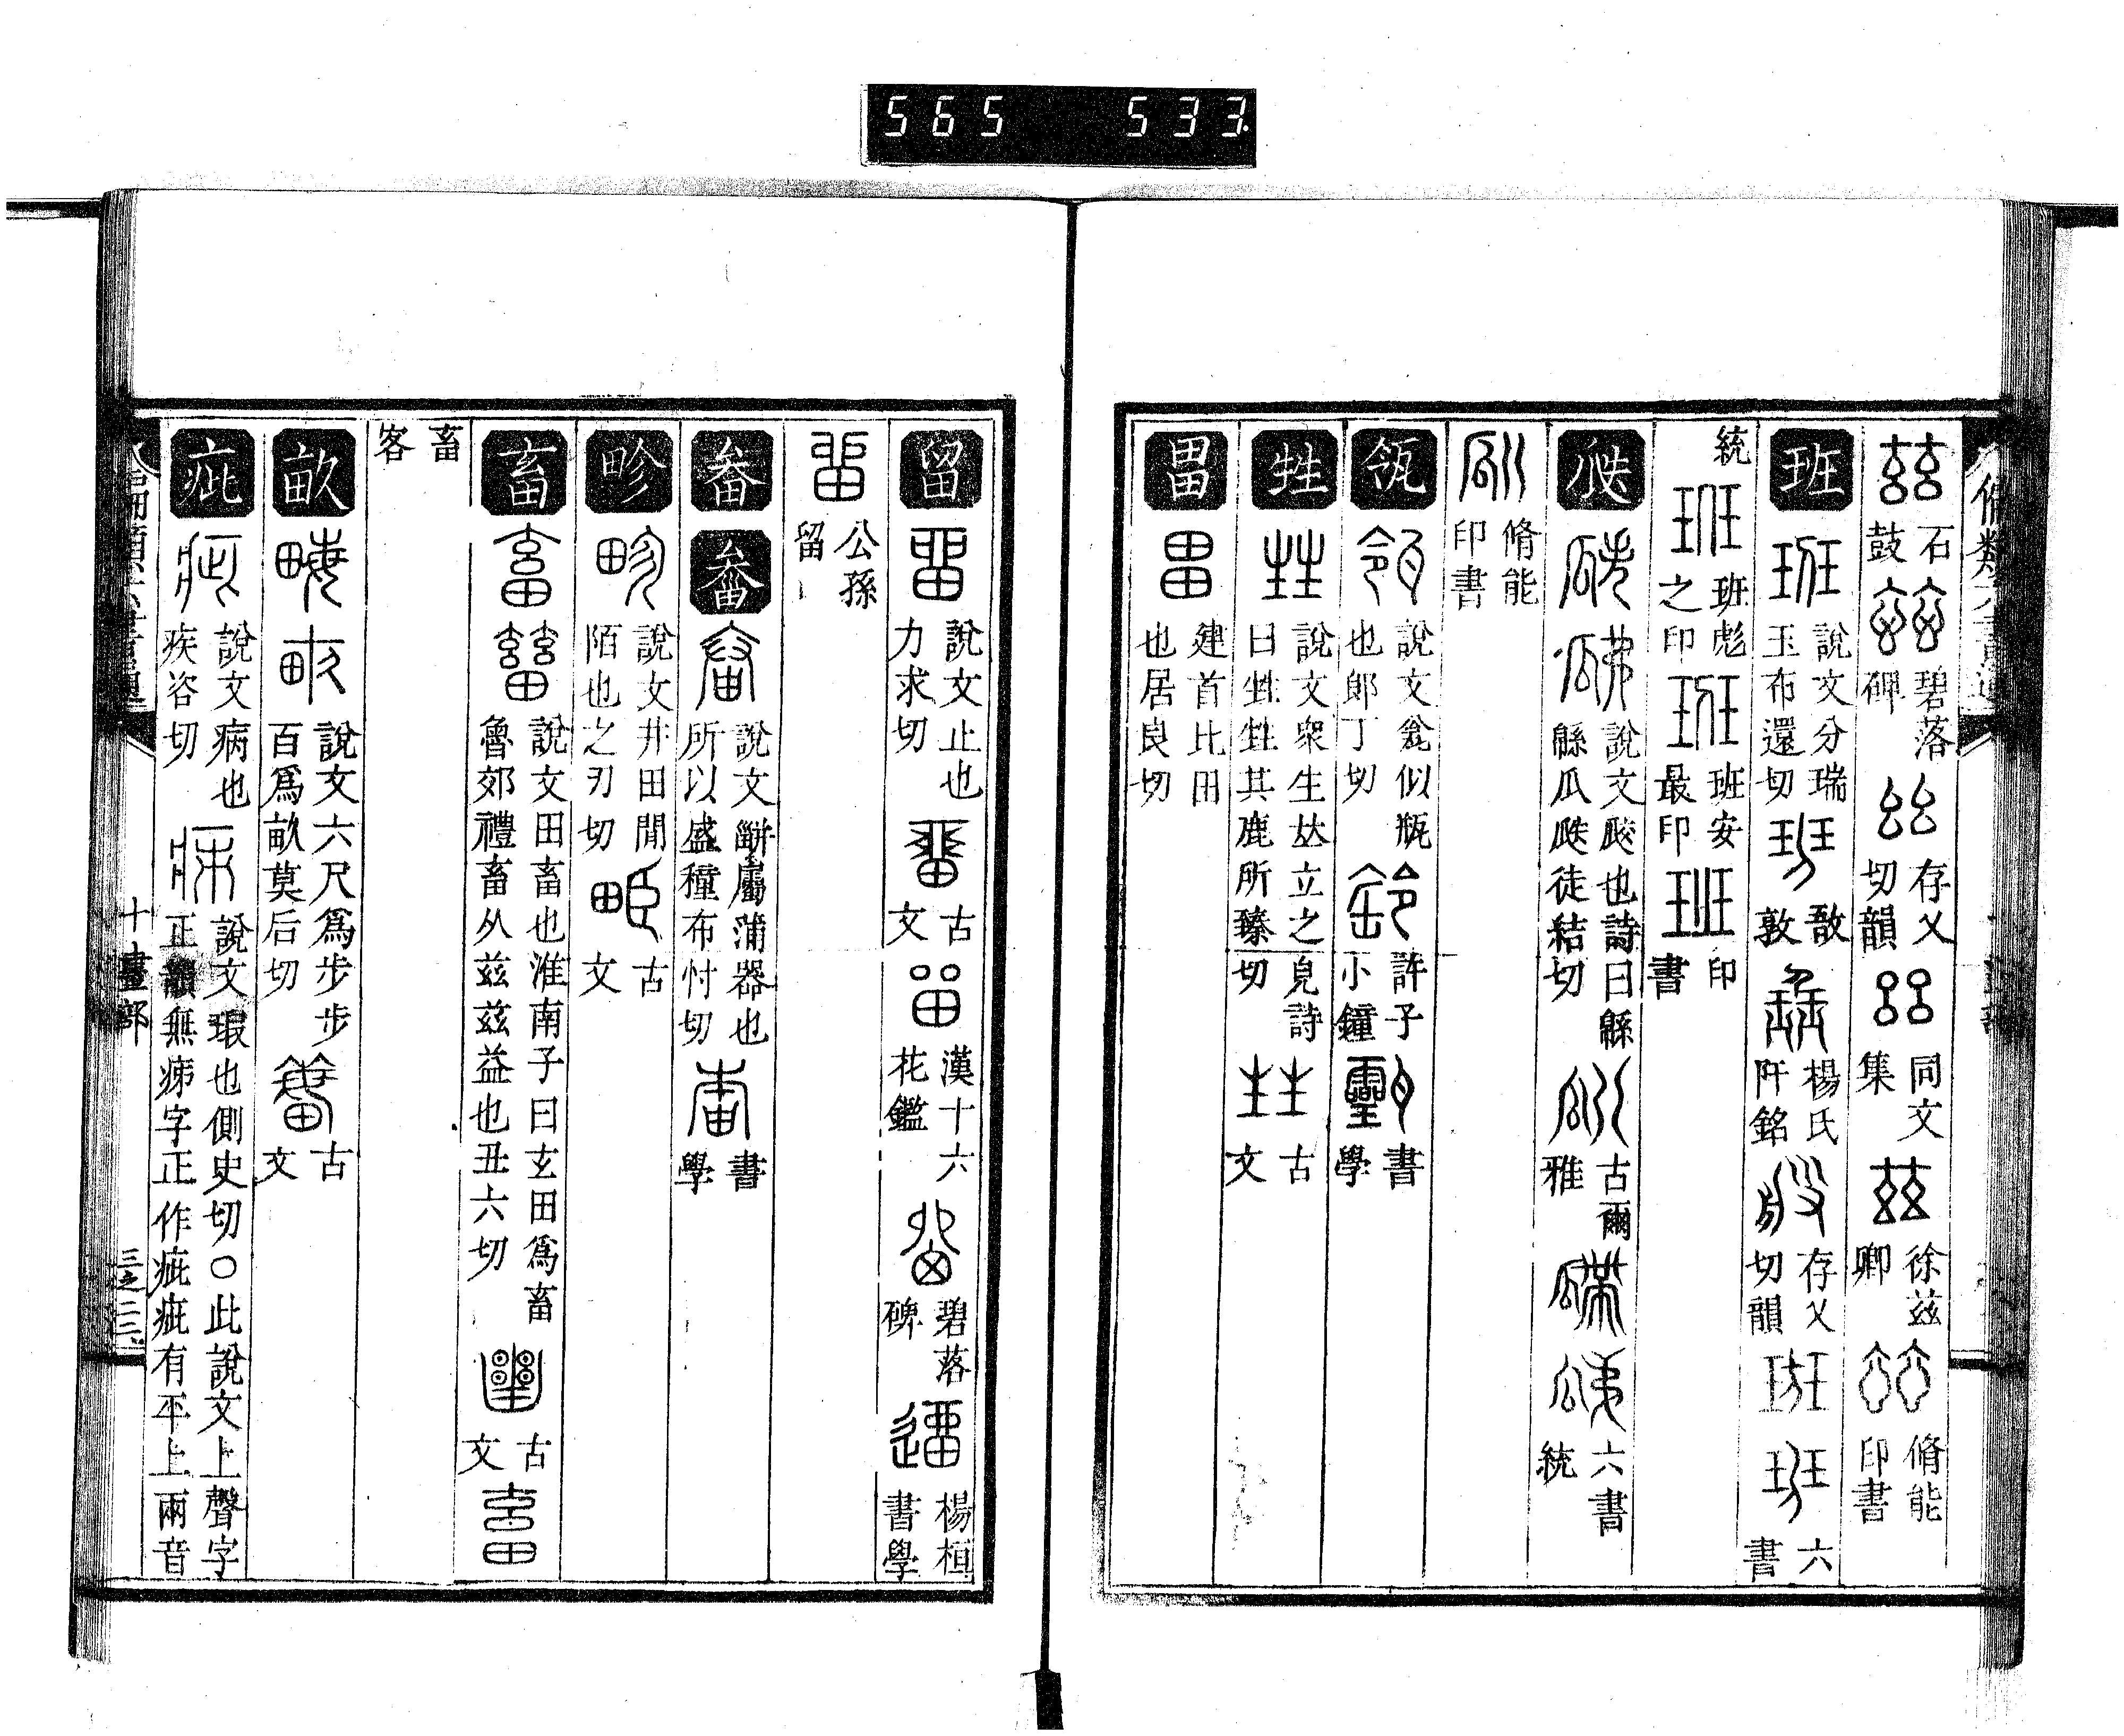 565 533
石鼓
碧落碑
存乂切韻
同文集
徐兹卿
脩能印書
班 說文分瑞玉布還切
敔敦
楊氏阡銘
存乂切韻
六書
統
班彪之印
班安最印
印書
瓞 說文㼎也詩曰緜緜瓜瓞徒結切
古爾雅
六書統
脩能印書
瓴 說文瓮似瓶也郎丁切
許子小鐘
書學
甡 說文衆生㚘立之皃詩曰甡甡其鹿所臻切
古文
畕 建首比田也居良切
留 說文止也力求切
古文
漢十六花鑑
碧落碑
楊桓書學
公孫留
畚 說文㽀屬蒲器也所以盛種布忖切
書學
畛 說文井田間陌也之刃切
古文
畜 說文田畜也淮南子曰玄田為畜魯郊禮畜从兹兹益也丑六切
古文
畜客
畝 說文六尺為步步百為畝莫后切
古文
疵 說文病也疾咨切
說文瑕也側史切○此說文上聲字正韻無㾅字正作疵疵有平上兩音
十畫部
三之二三